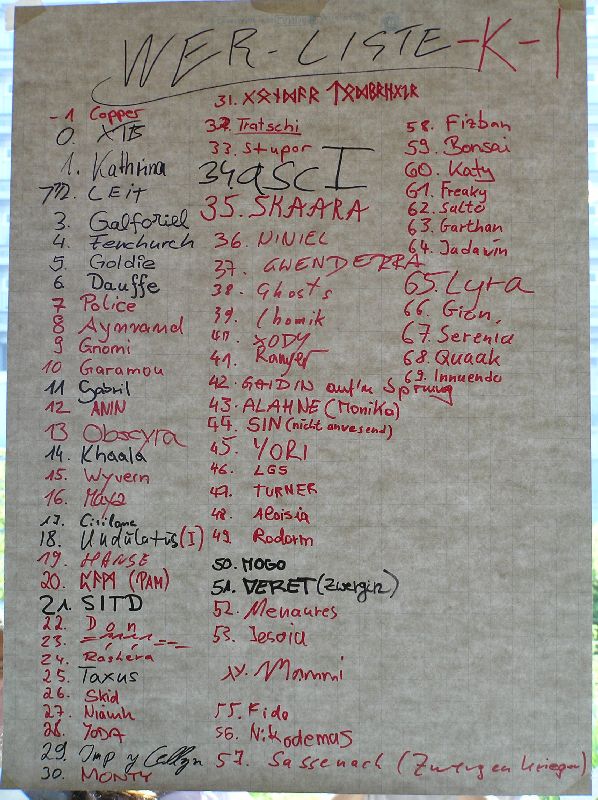 WER-LISTE-K-1
-1 Copper
0. XTB
1. Kathrina
LEIT
3. Galforiel
4. Fenchurch
5 Goldie
6 Dauffe
7 Police
8 Aymramel
9 Gnomi
10 Garamou
11 Gabril
12 ANIN
13 Obscyra
14. Khaala
15. Wyvern
16. Maya
17.
18. Undulatus (I)
19. HANSE
20. (PAM)
21. SITD
22. Don
23.
24. Rashéra
25. Taxus
26. Skid
27. Niamh
28. YODA
29. Imp y Celyn
30. MONTY
31.
32. Tratschi
33. Stupor
34. ascI
35. SKAARA
36. NINIEL
37. GWENDERRA
38. Ghosts
39. Chomik
40. XODY
41. Ranger
42. GAIDIN auf'm Sprung
43. ALAHNE (Monika)
44. SIN (nicht anwesend)
45. YORI
46. LGS
47. TURNER
48. Aloisia
49. Rodorm
50. MOGO
51. DERET (Zwergin)
52. Menaures
53. Jesaia
Mammi
55. Fido
56. Nikodemas
57. Sassenach (Zwergenkrieger)
58. Fizban
59. Bonsai
60. Katy
61. Freaky
62. Salto
63. Garthan
64. Jadawin
65. Lyra
66. Gion,
67. Serenia
68. Quaak
69. Innuendo